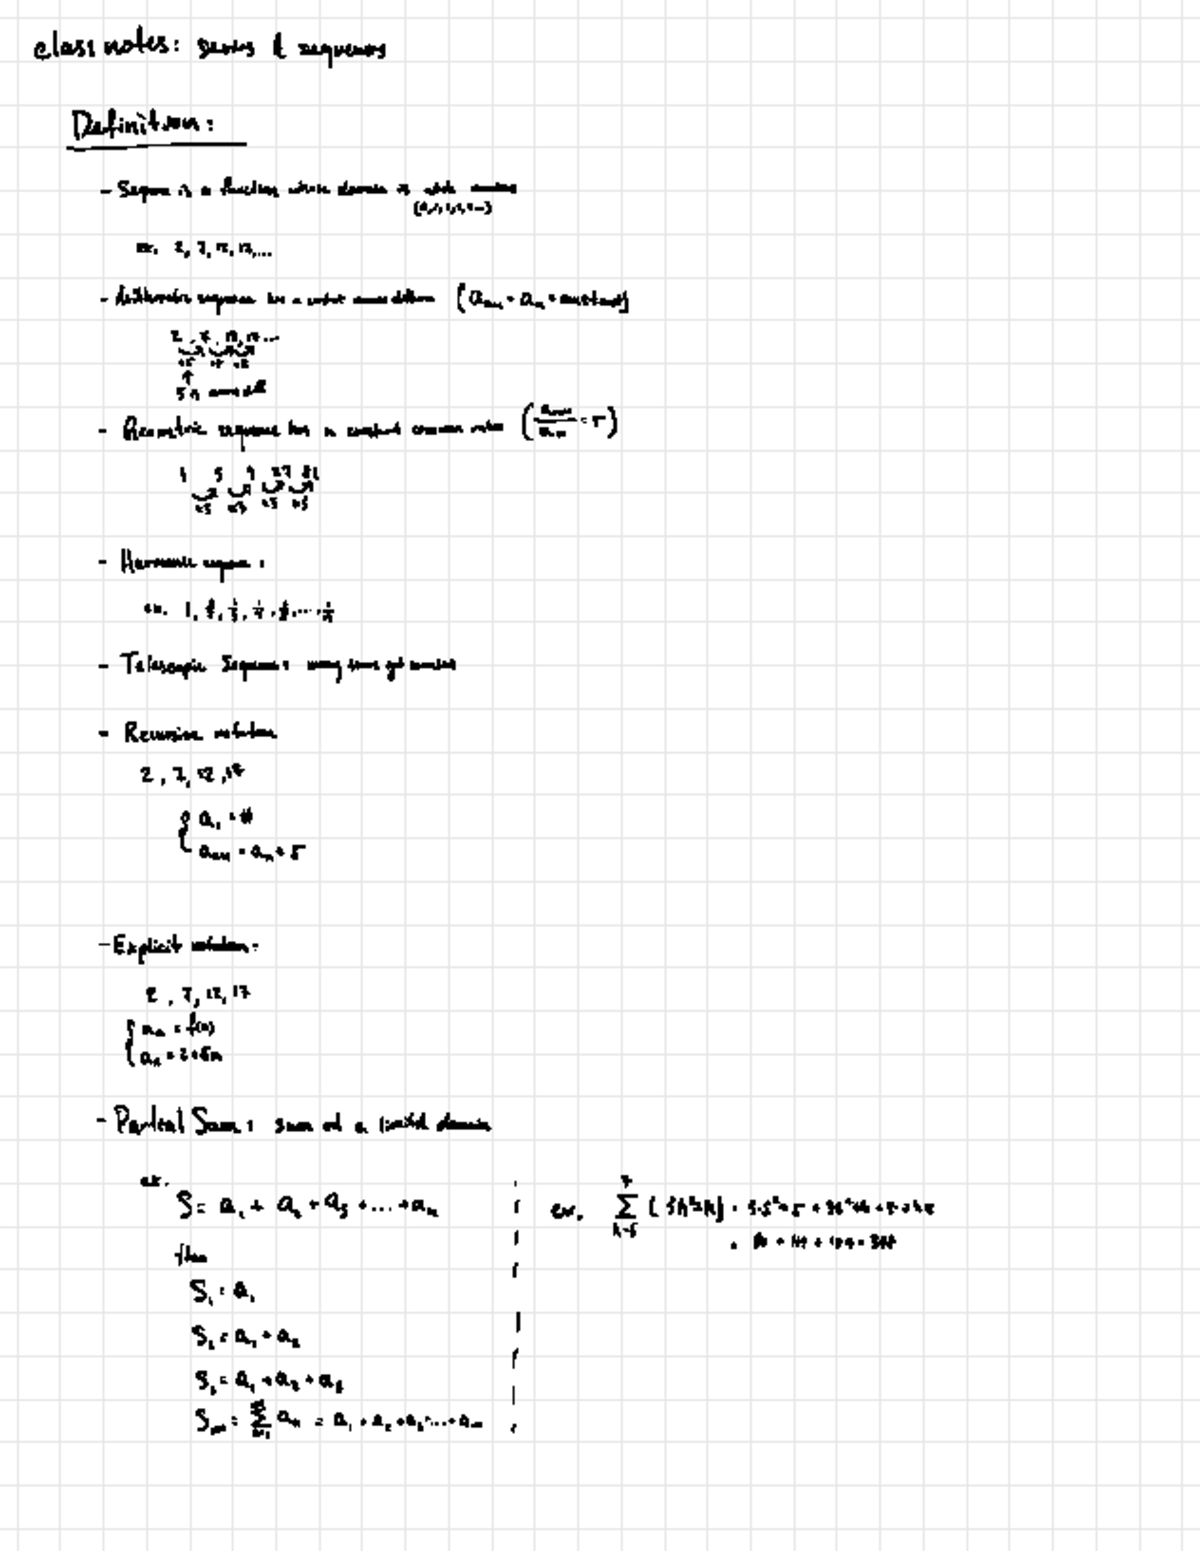 class notes: series & sequences
Definition:
- Sequence is a function whose domain is whole numbers
ex. 2, 7, 12, 17, ...
- Arithmetic sequence has a constant common difference (aₙ₊₁ - aₙ = constant)
2, 7, 12, 17 ...
+5 +5 +5
↑
5 is common diff
- Geometric sequence has a constant common ratio (aₙ₊₁/aₙ = r)
1 3 9 27 81
×3 ×3 ×3 ×3
- Harmonic sequence:
ex. 1, 1/2, 1/3, 1/4, 1/5, ..., 1/n
- Telescopic Sequence: many terms get
- Recursive notation
2, 7, 12, 17
{ a₁ = #
aₙ₊₁ = aₙ + 5
- Explicit notation:
2, 7, 12, 17
{ aₙ = f(n)
aₙ = 2+5n
- Partial Sum: sum of a limited domain
ex.
S = a₁ + a₂ + a₃ + ... + aₙ
then
S₁ = a₁
S₂ = a₁ + a₂
S₃ = a₁ + a₂ + a₃
= a₁ + a₂ + a₃ ... +
ex. 7 Σ k=5